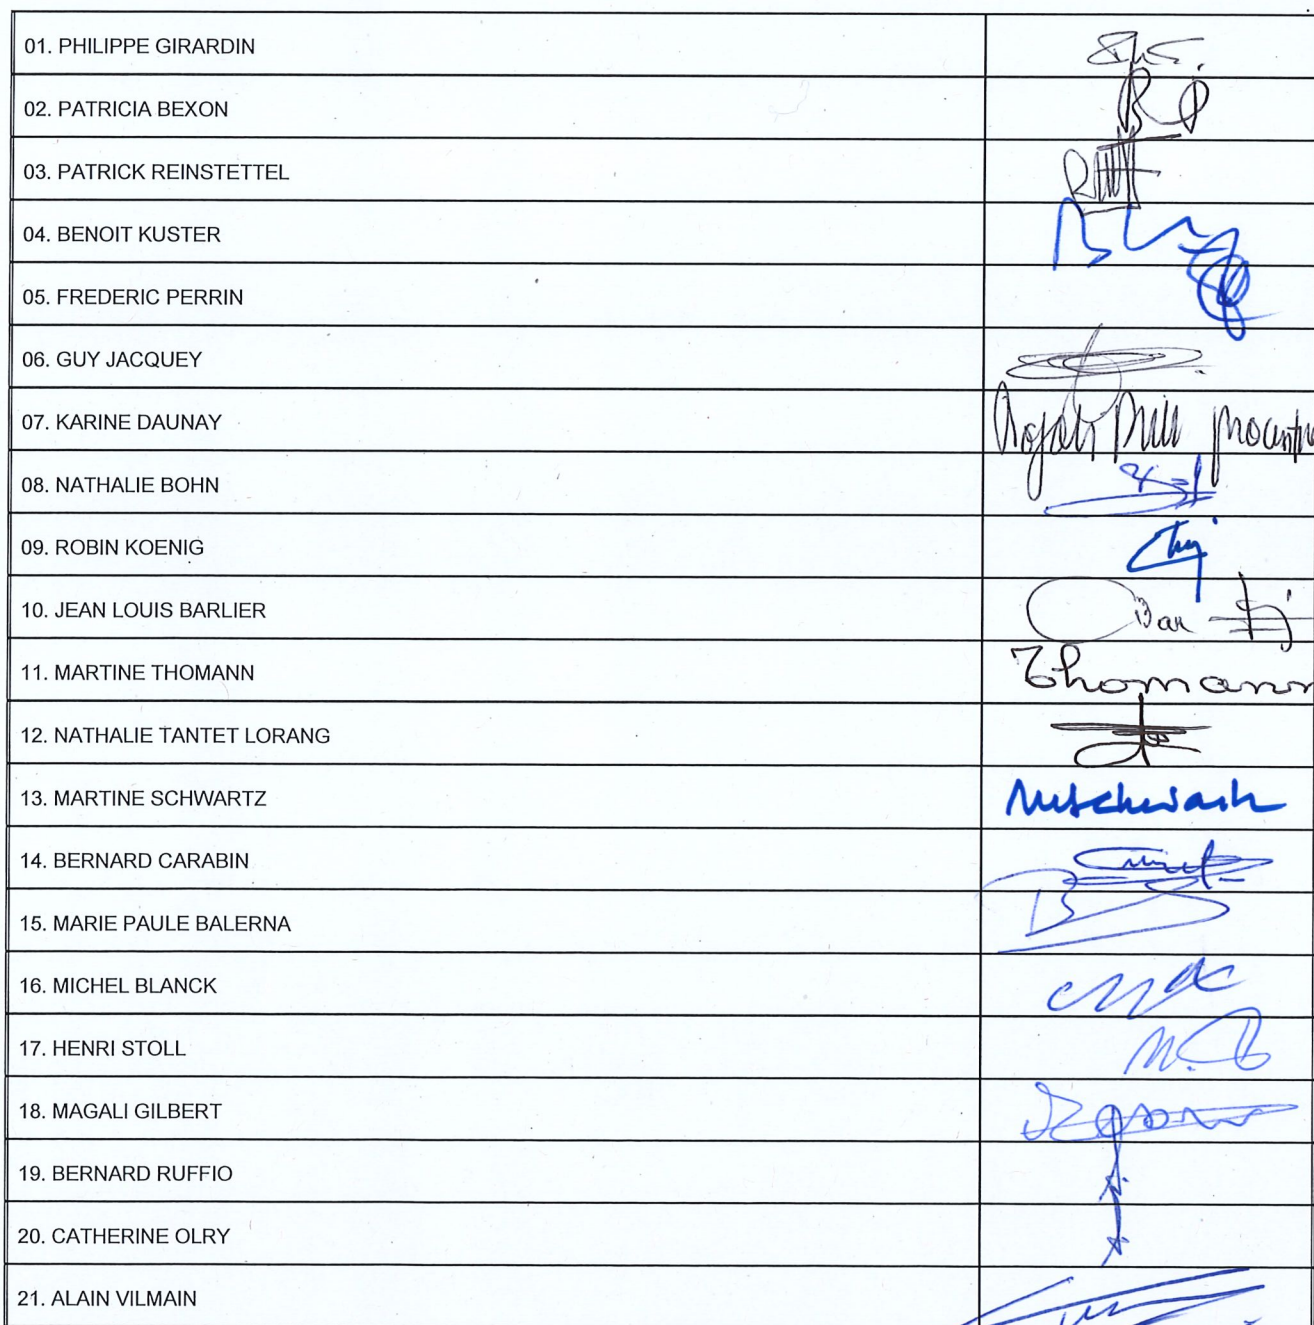 01. PHILIPPE GIRARDIN
02. PATRICIA BEXON
03. PATRICK REINSTETTEL
04. BENOIT KUSTER
05. FREDERIC PERRIN
06. GUY JACQUEY
07. KARINE DAUNAY
08. NATHALIE BOHN
09. ROBIN KOENIG
10. JEAN LOUIS BARLIER
11. MARTINE THOMANN Thomann
12. NATHALIE TANTET LORANG
13. MARTINE SCHWARTZ
14. BERNARD CARABIN
15. MARIE PAULE BALERNA
16. MICHEL BLANCK
17. HENRI STOLL
18. MAGALI GILBERT
19. BERNARD RUFFIO
20. CATHERINE OLRY
21. ALAIN VILMAIN